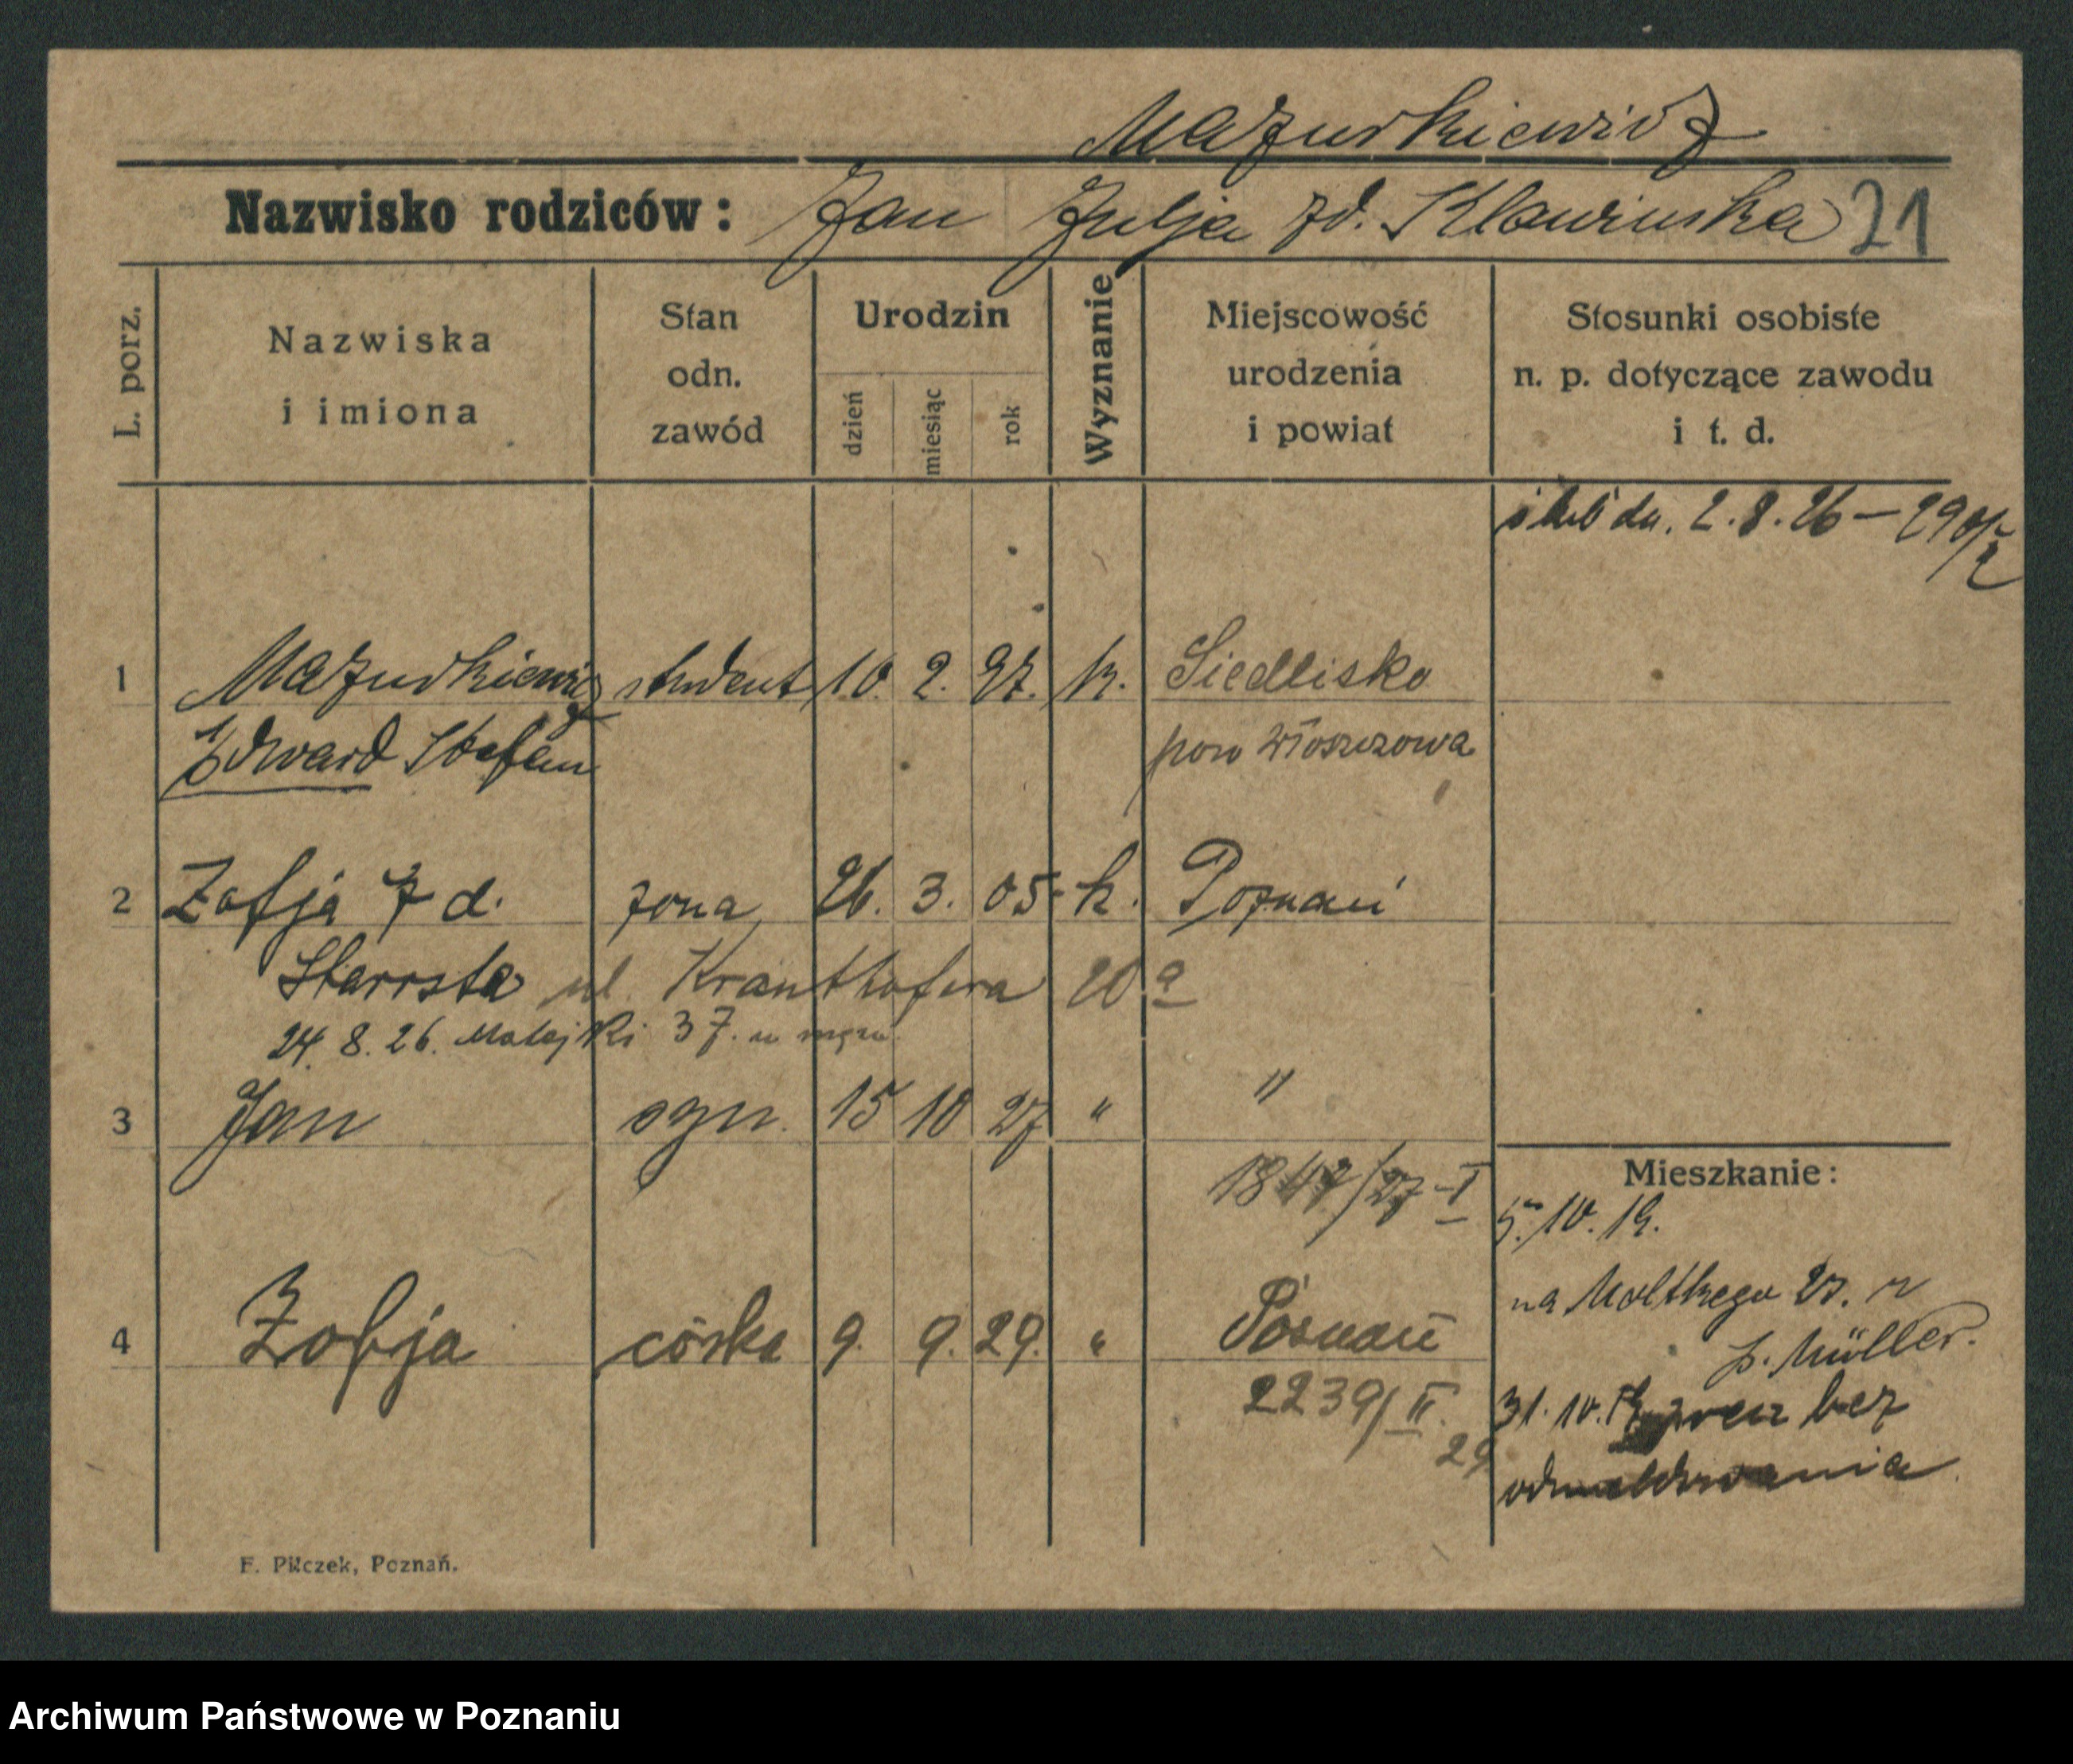 Mazurkiewicz
Nazwisko rodziców: Jan Julja zd. Klawińska 21
L. porz.
Nazwiska
i imiona
Stan
odn.
zawód
Urodzin
dzień
miesiąc
rok
Wyznanie
Miejscowość
urodzenia
i powiat
Stosunki osobiste
n. p. dotyczące zawodu
i t. d.
ślub dn. 2.8.26 —
1 Mazurkiewicz student 10. 2. 97. k. Siedlisko
Edward Stefan pow Włoszczowa
2 Zofja z d. żona 26. 3. 05 k. Poznań
Starosta ul. Kranthofera 20 a
24. 8. 26. Matejki 37.
3 Jan syn. 15 10 27 " "
1847/27 - I
Mieszkanie:
5. 10. 19.
na Moltkego
p. Müller.
4 Zofja córka 9. 9. 29. " Poznań
2239/II.
29
31. 10. bez
odmeldowania
F. Pilczek, Poznań.
Archiwum Państwowe w Poznaniu